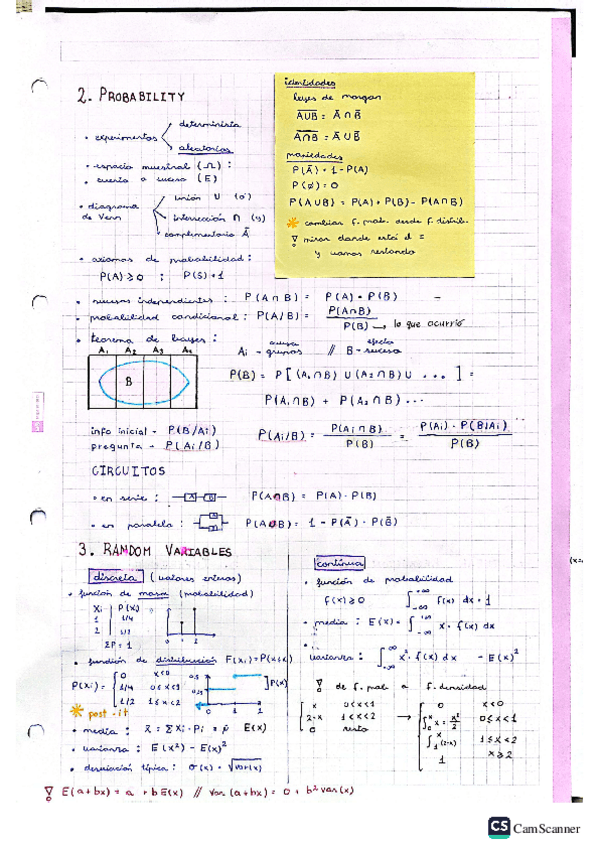 2. PROBABILITY
• experimentos
determinista
aleatorios
• espacio muestral (Ω) :
• evento o suceso (E)
• diagrama de Venn
unión U (o)
intersección ∩ (y)
complementario Ā
• axiomas de probabilidad :
P(A) ≥ 0 ; P(S) = 1
identidades
leyes de morgan
propiedades
P(Ā) = 1 - P(A)
P(∅) = 0
P(A∪B) = P(A) + P(B) - P(A∩B)
cambiar f. prob. desde f. distrib.
mirar donde está el =
y vamos restando
• sucesos independientes : P(A∩B) = P(A) · P(B)
• probabilidad condicional : P(A/B) = P(A∩B) / P(B) → lo que ocurrió
• teorema de bayes :
A₁ A₂ A₃ A₄
B
causas efecto
Ai - grupos // B - suceso
P(B) = P[(A₁∩B) ∪ (A₂∩B) ∪ ...] =
P(A₁∩B) + P(A₂∩B) ...
info inicial - P(B/Ai)
pregunta - P(Ai/B)
P(Ai/B) = P(Ai∩B) / P(B) = P(Ai) · P(B/Ai) / P(B)
CIRCUITOS
• en serie : A B P(A∩B) = P(A) · P(B)
• en paralelo : A B P(A∪B) = 1 - P(Ā) · P(B̄)
3. RANDOM VARIABLES
discreta (valores enteros)
• función de masa (probabilidad)
Xi P(Xi)
1 1/4
2
ΣP = 1
• función de distribución F(Xi) = P(X≤x)
P(Xi) = { 0 x<0
1/4 0≤x<1
1/2 1≤x<2
] P(x)
post-it
• media : x̄ = Σ Xi · Pi = μ E(X)
• varianza : E(X²) - E(X)²
• desviación típica : σ(x) = √var(x)
continua
• función de probabilidad
f(x) ≥ 0 ∫ f(x) dx = 1
• media : E(X) = ∫ x · f(x) dx
• varianza : ∫ x² · f(x) dx - E(X)²
de f. prob. a f. densidad
x 0<x<1
2-x 1<x<2
0 resto
→
0 x<0
∫ x = x²/2 0≤x<1
∫ (2-x) 1≤x<2
1 x≥2
E(a+bx) = a + bE(x) // Var(a+bx) = 0 + b² var(x)
CS CamScanner